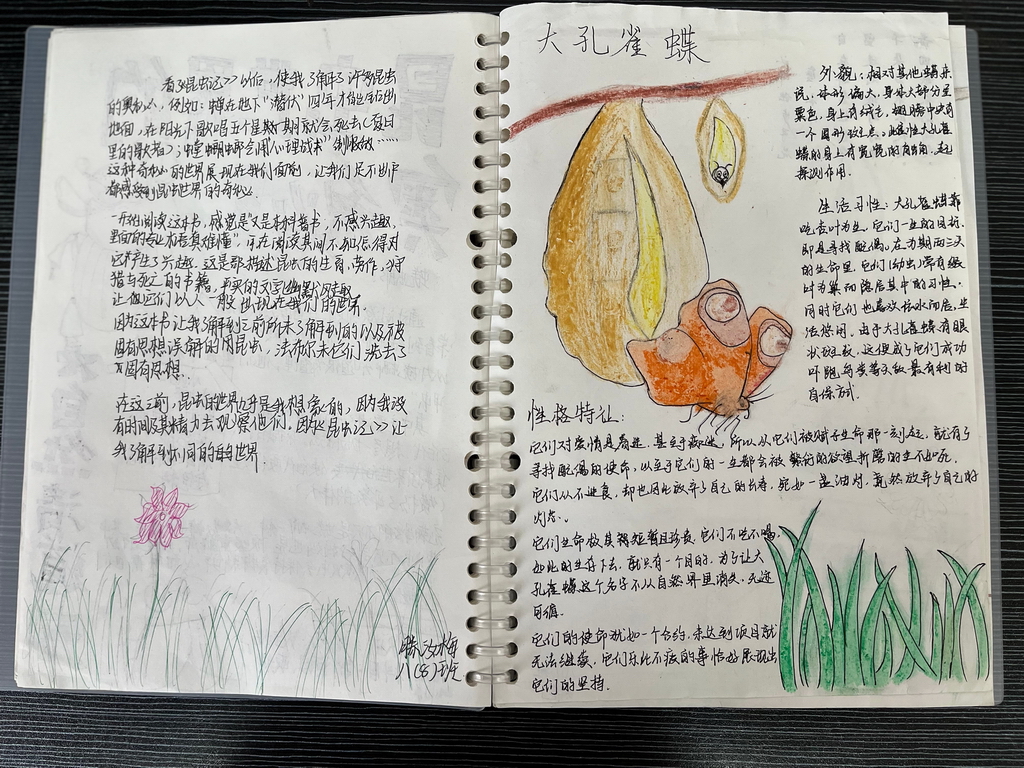 看《昆虫记》以后，使我了解了许多昆虫
的奥秘，例如：蝉在地下"潜伏"四年才能钻出
地面，在阳光下歌唱五个星期就会死去（夏日
里的歌者）；螳螂会用"心理战术"制服敌……
这种奇妙的世界展现在我们面前，让我们足不出户
都感受到昆虫世界的奇妙。
一开始阅读这本书，感觉是"又是本科普书，不感兴趣，
里面的专业术语真难懂"，可在阅读其间不知怎得对
它产生了兴趣，这是部描述昆虫的生育、劳作、狩
猎与死亡的书籍，
让他们以人一般出现在我们的世界。
因为这本书让我了解到之前所未了解到的以及被
固有思想误解的昆虫，
固有思想。
在这之前，昆虫的世界也许是我想象的，因为我没
有时间及其精力去观察他们，因《昆虫记》让
我了解到不同的世界
八（8）班
大孔雀蝶
外观：相对其他蝴来
说，体形偏大，身体大部分呈
栗色，身上有绒毛，翅膀中央有
一个圆形斑点。雄性大孔雀
蝶的身上有宽宽的触角，起
探测作用。
生活习性：大孔雀蝶靠
吃杏叶为生，它们一生的目标，
即是寻找配偶。在为期两三天
的生命里，它们（幼虫）常有缀
叶为巢而隐居其中的习性，
同时它们也喜欢栖水而居，生
活悠闲。由于大孔雀蝶有眼
状斑纹，这便成了它们成功
吓跑鸟类等天敌最有利的
自保方式
性格特征：
它们对爱情是着迷，甚至于痴迷，所以从它们被赋予生命那一刻起，就有了
寻找配偶的使命，以至于它们的一生都会被繁衍的欲望折磨的生不如死。
它们从不进食，却也因此放弃了自己的寿寿，宛如一盏油灯，竟然放弃了自己的
灯芯。
它们生命极其短暂且珍贵，它们不吃不喝，
如此的生存下去，就只有一个目的，为了让大
孔雀蝶这个名字不从自然界里消失，无迹
可循
它们的使命犹如一个合约，未达到项目就
无法继续，它们乐此不疲的事恰好展现出
它们的坚持。